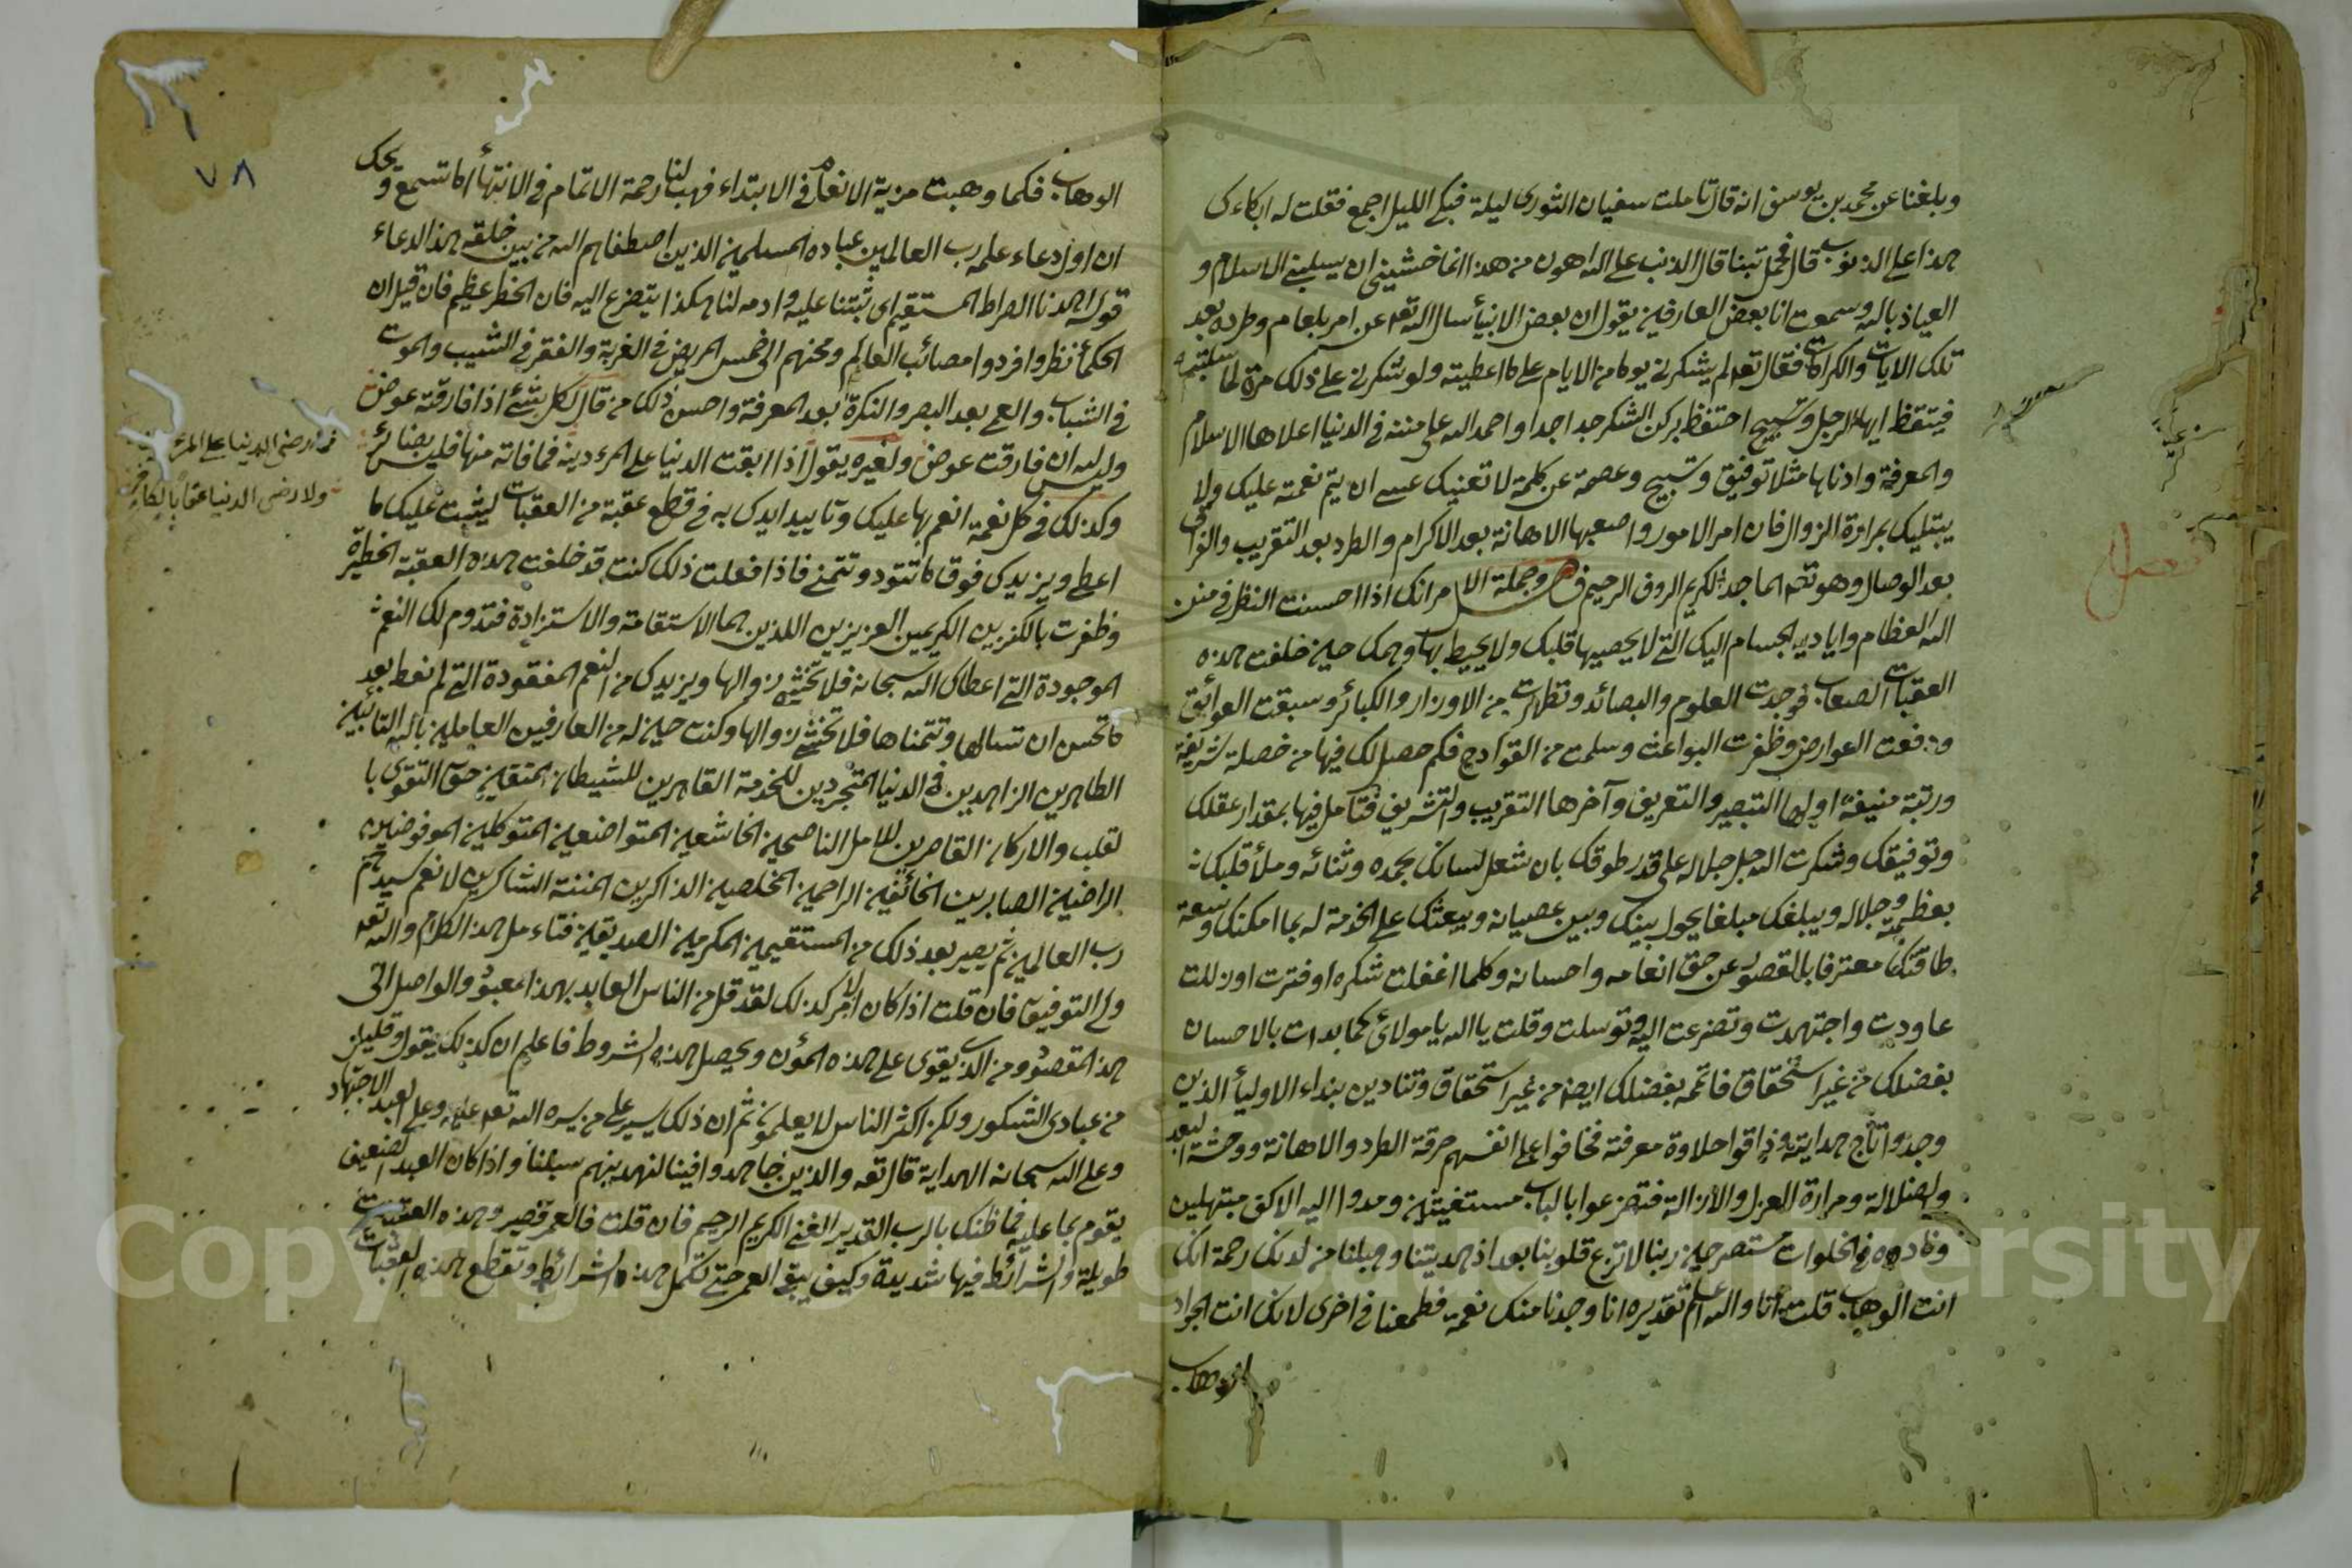 وبلغنا عن محمد بن يوسف انه قال تاملت سفيان الثورى ليلة فبكى الليل اجمع فقلت له ابكاءك
هذا على الذنوب قال فحمل تبنا قال الذنب على الله اهون من هذا انما خشيتى ان يسلبنى الاسلام و
العياذ بالله وسمعت انا بعض العارفين يقول ان بعض الانبيأ سال الله تعه عن امر بلعام وطرده بعد
تلك الايات والكرامات فقال تعه لم يشكرنى يوما من الايام على ما اعطيته ولو شكرنى على ذلك مرة لما سلبته
فيتقظ ايها الرجل احتفظ بركن الشكر جدا جدا واحمد الله على مننه فى الدنيا اعلاها الاسلام
والمعرفة وادناها مثلا توفيق وتسبيح وعصمة عن كلمة لا تعنيك عسى ان يتم نعمته عليك ولا
يبتليك بمرارة الزوال فان امر الامور واصعبها الاهانة بعد الاكرام والطرد بعد التقريب والفراق
بعد الوصال وهو تعه الماجد الكريم الروف الرحيم فصل وجملة الامر انك اذا احسنت النظر فى منن
الله العظام واياديه الجسام اليك التى لا يحصيها قلبك ولا يحيط بها وهمك حين خلفت هذه
العقبات الصعاب فوجدت العلوم والبصائر وتطهرت من الاوزار والكبائر وسبقت العوائق
ودفعت العوارض وظفرت البواعث وسلمت من القوادح فكم حصل لك فيها من خصلة شريفة
ورتبة منيفة اولها التبصير والتعريف وآخرها التقريب والتشريف فتأمل فيها بمقدار عقلك
وتوفيقك وشكرت الله جل جلاله على قدر طوقك بان شغل لسانك بحمده وثنائه وملأ قلبك
بعظمته وجلاله ويبلغك مبلغا يحول بينك وبين عصيانه ويبعثك على الخدمة له بما امكنك وسعة
طاقتك معترفا بالقصور عن حق انعامه واحسانه وكلما اغفلت شكره او فترت او زللت
عاودت واجتهدت وتضرعت اليه وتوسلت وقلت يا الله يا مولائى كما بدات بالاحسان
بفضلك من غير استحقاق فاتمه بفضلك ايضا من غير استحقاق وتنادين بنداء الاوليأ الذين
وجدوا تاج هدايته وذاقوا حلاوة معرفته فخافوا على انفسهم حرقة الطرد والاهانة ووحشة البعد
والضلالة ومرارة العزل والازالة فتضرعوا بالباب مستغيثين ومدوا اليه الاكف مبتهلين
ونادوه فى الخلوات مستصرخين ربنا لا تزغ قلوبنا بعد اذ هديتنا وهب لنا من لدنك رحمة انك
انت الوهاب قلت انا والله اعلم تقديره انا وجدنا منك نعمة فطمعنا فى اخرى لانك انت الجواد
الوهاب
٧٨
الوهاب فكما وهبت مزية الانعام فى الابتداء فهب لنا رحمة الاتمام فى الانتهأ اما تسمع ويحك
ان اول دعاء علمه رب العالمين عباده المسلمين الذين اصطفاهم الله من بين خلقه هذا الدعاء
قوله اهدنا الصراط المستقيم اى ثبتنا عليه وادمه لنا هكذا يتضرع اليه فان الخطر عظيم فان قيل ان
الحكمأ نظروا فردوا مصائب العالم ومحنهم الى خمس المريض فى الغربة والفقر فى الشيب والموت
فى الشباب والعمى بعد البصر والنكرة بعد المعرفة واحسن ذلك من قال لكل شئ اذا فارقته عوض
وليس لله ان فارقت عوض ولغيره يقول اذا ابقت الدنيا على المرء دينه فما فاته منها فليس بضائر
وكذلك فى كل نعمة انعم بها عليك وتاييد ايدك به فى قطع عقبة من العقبات ليثبت عليك ما
اعطى ويزيدك فوق ما تتود وتتمنى فاذا فعلت ذلك كنت قد خلفت هذه العقبة الخطرة
وظفرت بالكنزين الكريمين العزيزين اللذين هما الاستقامة والاستزادة فتدوم لك النعم
الموجودة التى اعطاك الله سبحانه فلا تخشى زوالها ويزيدك من النعم المفقودة التى لم تعط بعد
ما تحسن ان تسالها وتتمناها فلا تخشى زوالها وكنت حينئذ من العارفين العاملين بالله التائبين
الطاهرين الزاهدين فى الدنيا المتجردين للخدمة القاهرين للشيطان المتقين حق التقوى با
لقلب والاركان القاصرين للامل الناصحين الخاشعين المتواضعين المتوكلين المفوضين
الراضين الصابرين الخائفين الراحمين المخلصين الذاكرين المننة الشاكرين لانعم سيدهم
رب العالمين ثم يصير بعد ذلك من المستقيمين المكرمين الصديقين فتاءمل هذا الكلام والله تعه
ولى التوفيق فان قلت اذا كان الامر كذلك لقد قل من الناس العابد بهذا المعبود والواصل الى
هذا المقصود ومن الذى يقوى على هذه المؤن ويحصل هذه الشروط فاعلم ان كذلك يقول وقليل
من عبادى الشكور ولكن اكثر الناس لا يعلمون ثم ان ذلك يسير على من يسره الله تعه عليه وعلى العبد الاجتهاد
وعلى الله سبحانه الهداية قال تعه والذين جاهدوا فينا لنهدينهم سبلنا واذا كان العبد الضعيف
يقوم بما عليه فما ظنك بالرب القدير الغنى الكريم الرحيم فان قلت فالعمر قصير وهذه العقبات
طويلة والشرائط فيها شديدة وكيف يبقى العمر حتى تكمل هذه الشرائط وتقطع هذه العقبات
ولا رضى الدنيا عقابا لكافر
Copyright © King Saud University